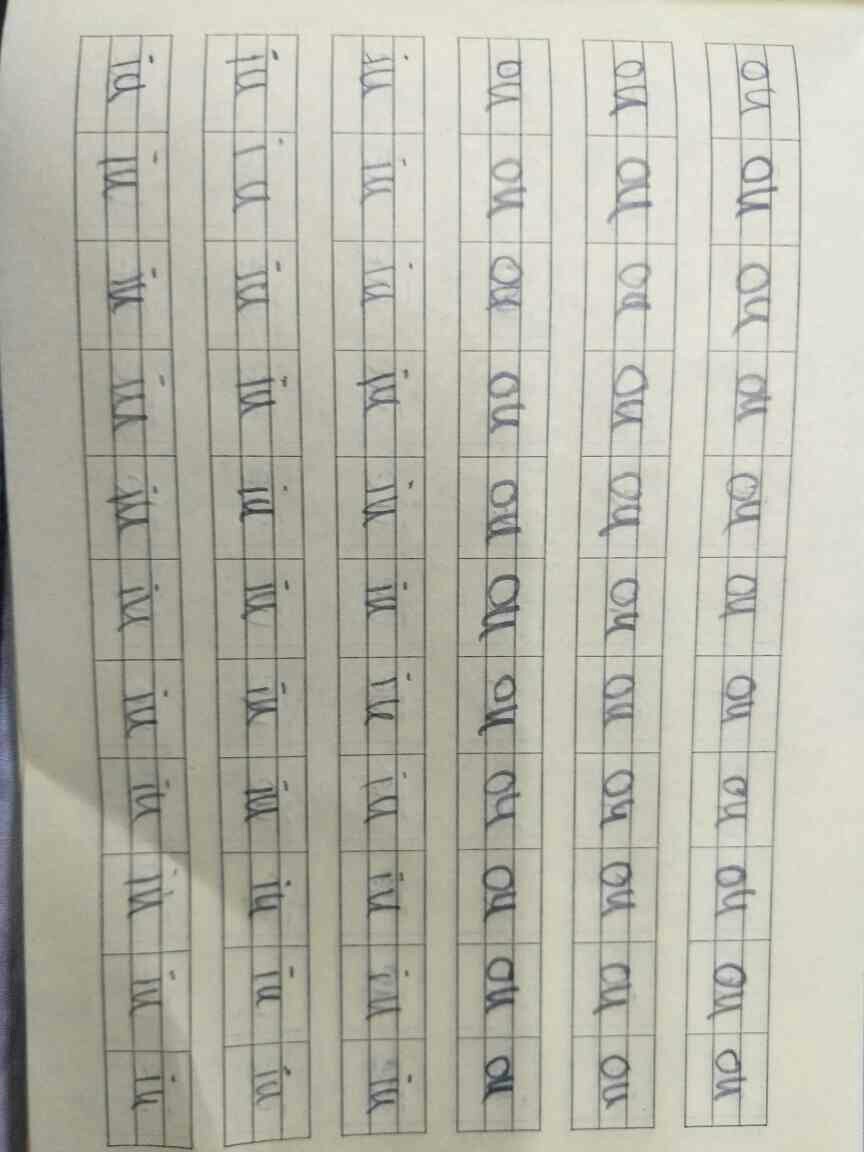 ou ou ou ou ou ou ou ou ou ou ou
ou ou ou ou ou ou ou ou ou ou ou
ou ou ou ou ou ou ou ou ou ou ou
iu iu iu iu iu iu iu iu iu iu iu
iu iu iu iu iu iu iu iu iu iu iu
iu iu iu iu iu iu iu iu iu iu iu